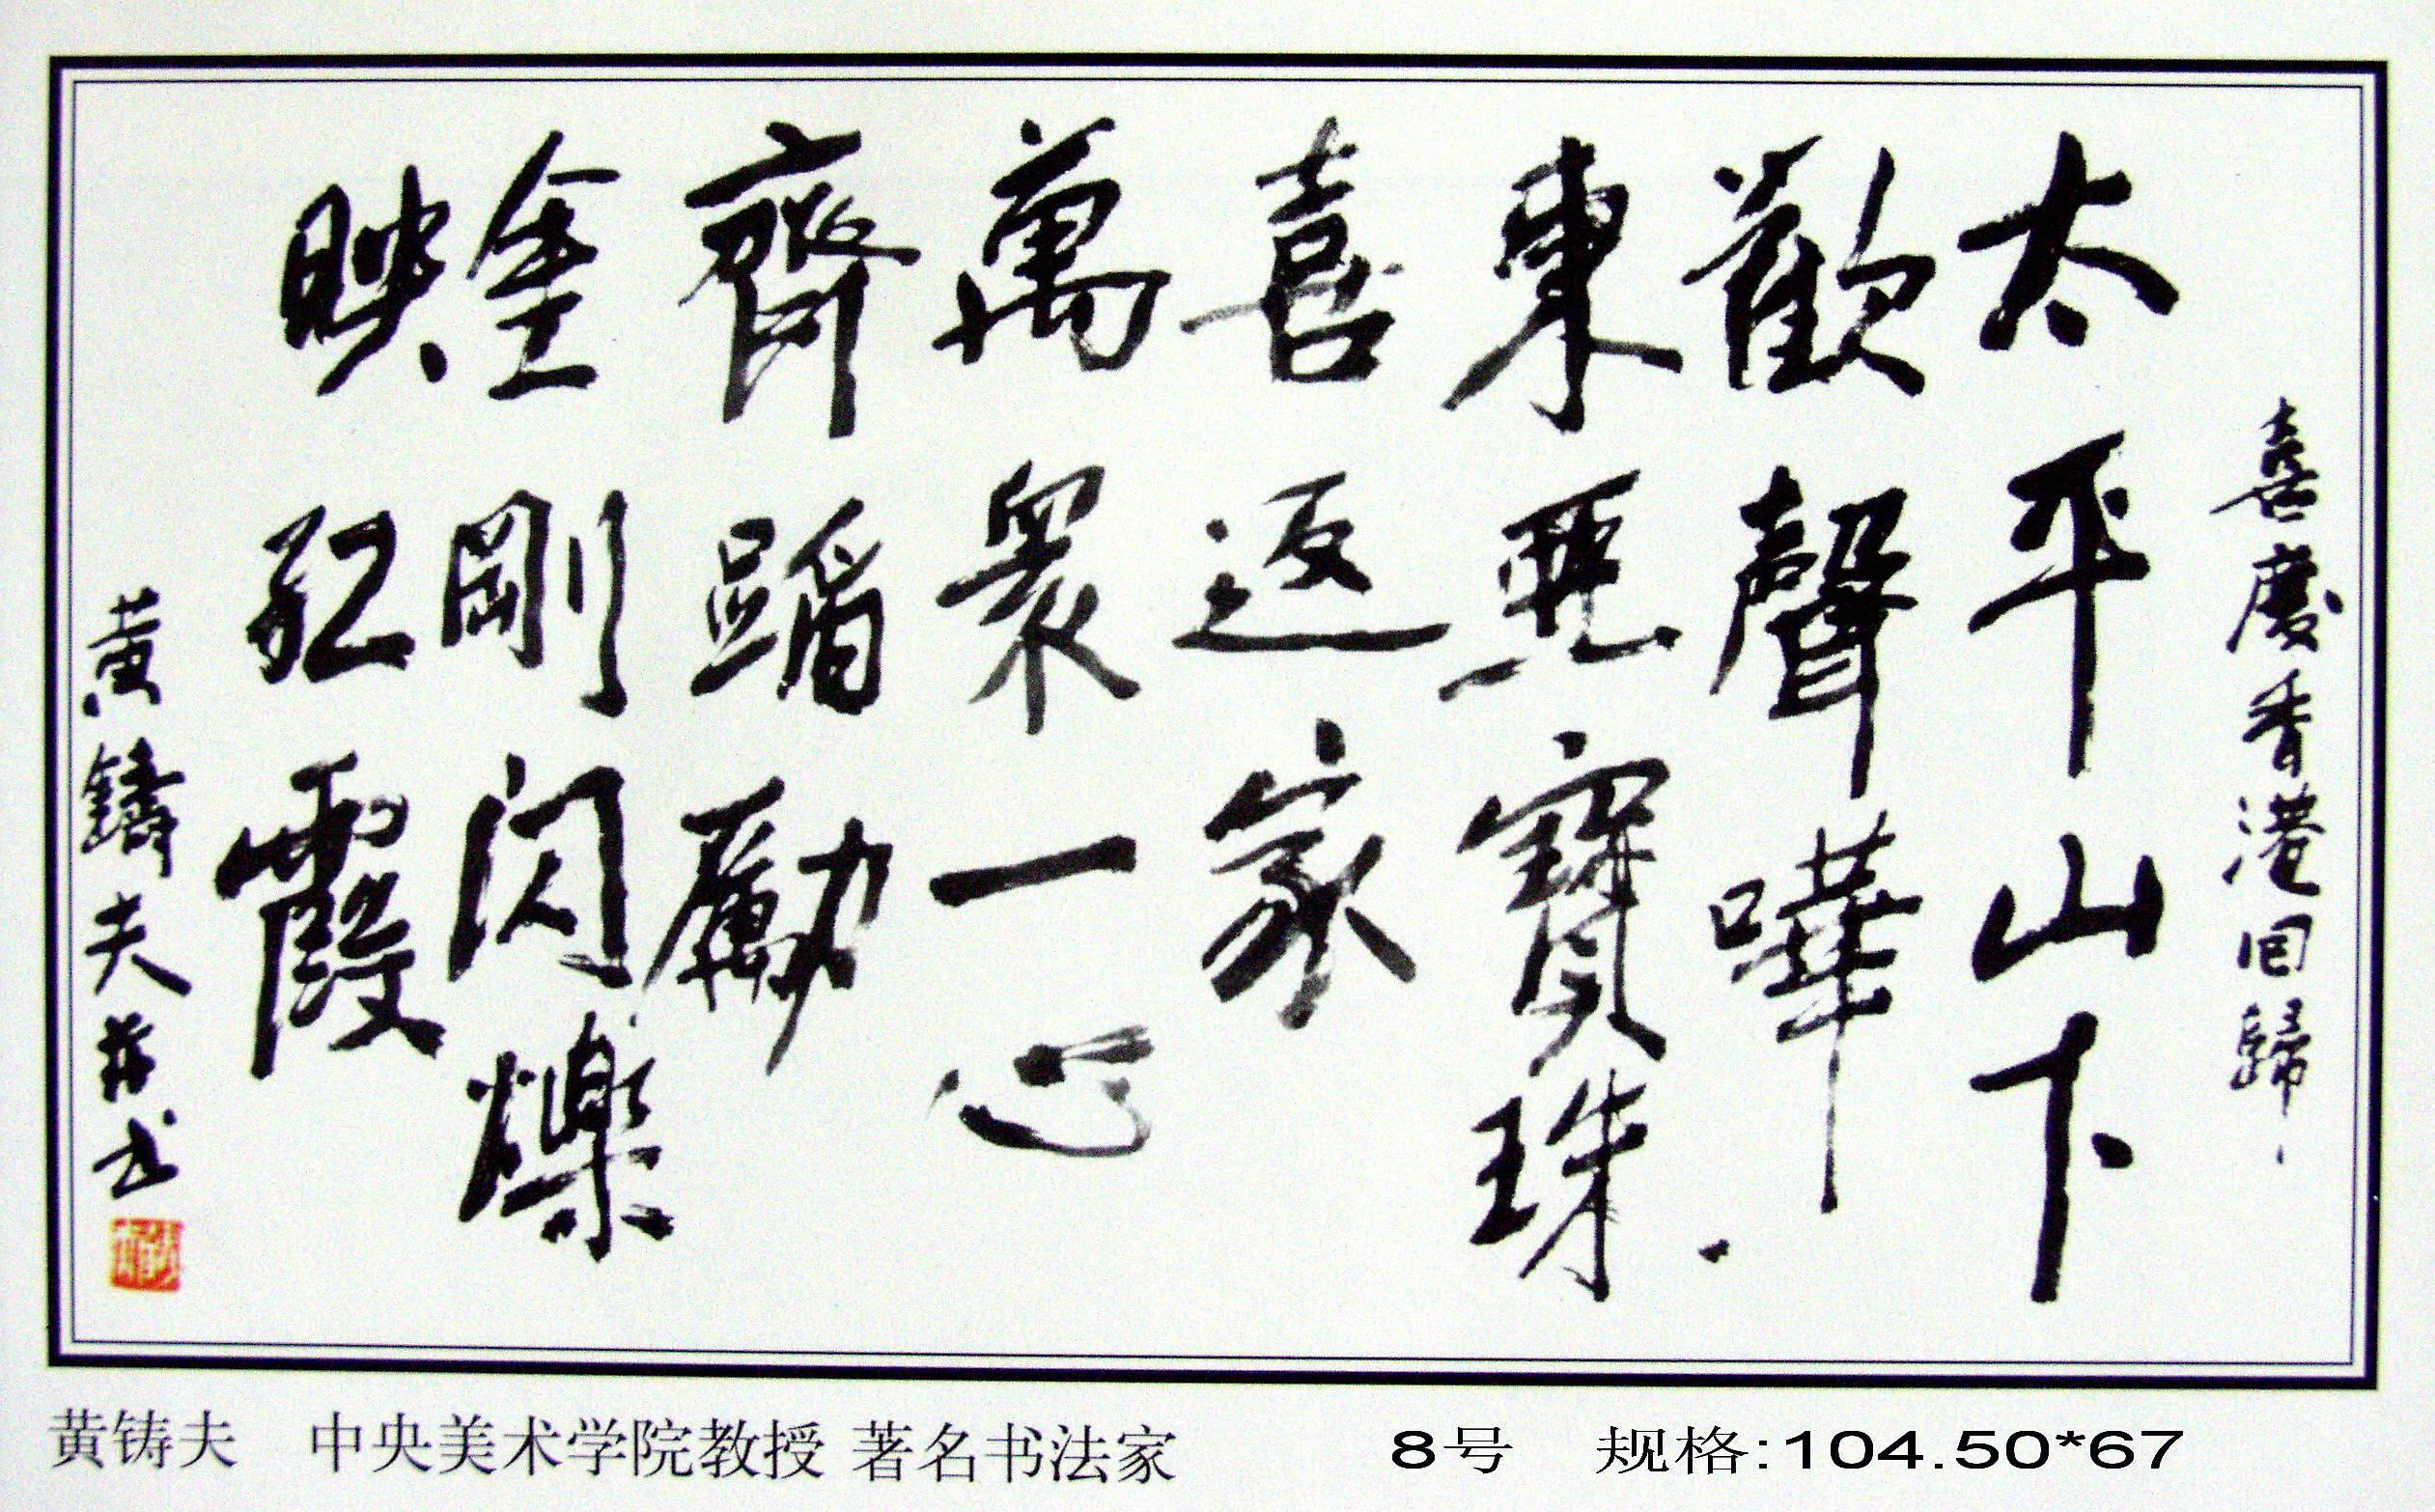 喜慶香港回歸
太平山下
歡聲嘩
東亞寶珠
喜返家
萬眾一心
齊蹈勵
金剛閃爍
映紅霞
黄鑄夫并书
黄铸夫 中央美术学院教授 著名书法家 8号 规格:104.50*67